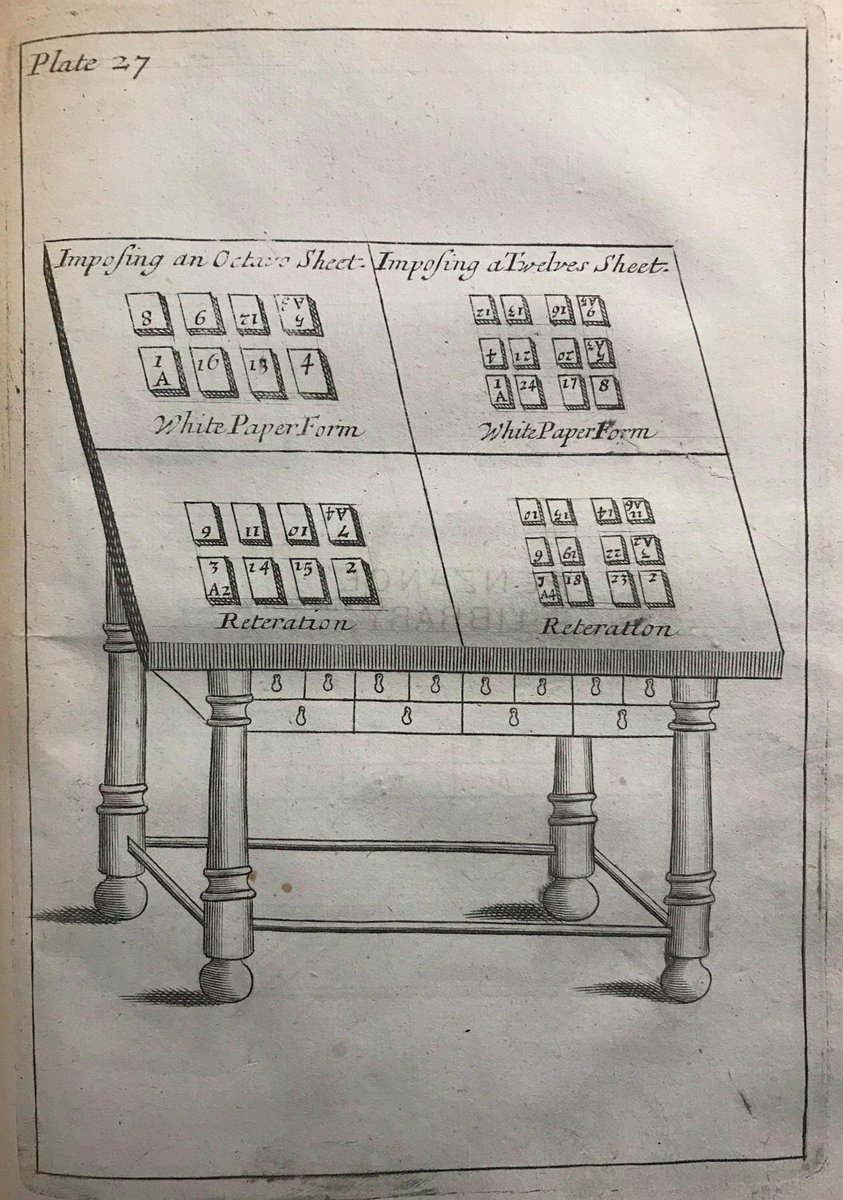 Plate 27
Impoſing an Octavo Sheet.
Impoſing a Twelves Sheet.
8 9 12 5 A3
1 A 16 13 4
White Paper Form
12 13 16 9 A5
4 21 20 5 A3
1 A 24 17 8
White Paper Form
6 11 10 7 A4
3 A2 14 15 2
Reteration
10 15 14 11 A6
6 19 22 3 A2
7 A4 18 23 2
Reteration